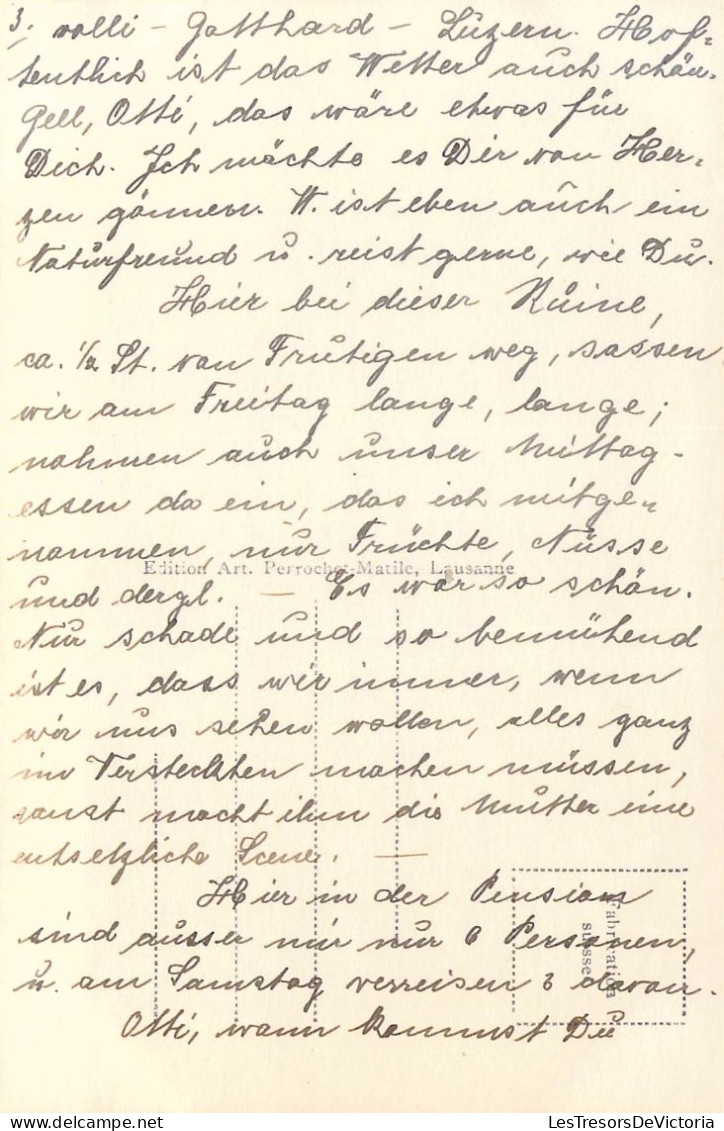 3. volli - Gotthard - Luzern. Hof-
fentlich ist das Wetter auch schön.
Gell, Otti, das wäre etwas für
Dich. Ich möchte es Dir von Her-
zen gönnen. W. ist eben auch ein
Naturfreund u. reist gerne, wie Du.
Hier bei dieser Ruine,
ca. 1/2 St. von Frutigen weg, sassen
wir am Freitag lange, lange;
nahmen auch unser Mittag-
essen da ein, das ich mitge-
nommen, nur Früchte, Nüsse
Edition Art. Perrochet-Matile, Lausanne
und dergl. — Es war so schön.
Nur schade und so bemühend
ist es, dass wir immer, wenn
wir uns sehen wollen, alles ganz
im Versteckten machen müssen,
sonst macht ihm die Mutter eine
entsetzliche Scene. —
Hier in der Pension
sind ausser mir nur 6 Personen,
u. am Samstag verreisen 3 davon.
Otti, wann kommst Du
Fabrication
suisse
LesTresorsDeVictoria
LesTresorsDeVictoria.com